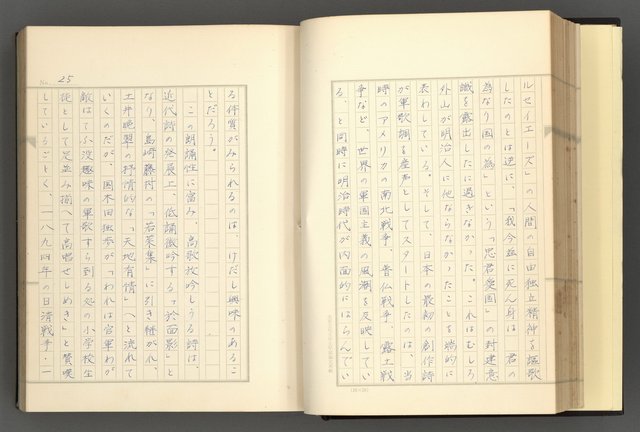 ルセイエーズ」の人間の自由独立精神を謳歌
したのとは逆に、「我今茲に死ん身は　君の
為なり国の為」という「忠君愛国」の封建意
識を露出したに過ぎなかった。これはむしろ
外山が明治人に他ならなかったことを端的に
表わしている。そして、日本の最初の創作詩
が軍歌調を産声としてスタートしたのは、当
時のアメリカの南北戦争、普仏戦争、露土戦
争など、世界の軍国主義の風潮を反映してい
る、と同時に明治時代が内面的にはらんでい
No. 25
る体質がみられるのは、けだし興味のあるこ
とだろう。
この朗誦性に富み、高歌放吟しうる詩は、
近代詩の発展上、低誦微吟する「於面影」と
なり、島崎藤村の「若菜集」に引き継がれ、
土井晩翠の抒情的な「天地有情」へと流れて
いくのだが、国木田独歩が「『われは官軍わが
敵は』てふ没趣味の軍歌すら到る処の小学校生
徒をして足並み揃へて高唱せしめき」と賛嘆
しているごとく、一八九四年の日清戦争・一
(20×20)